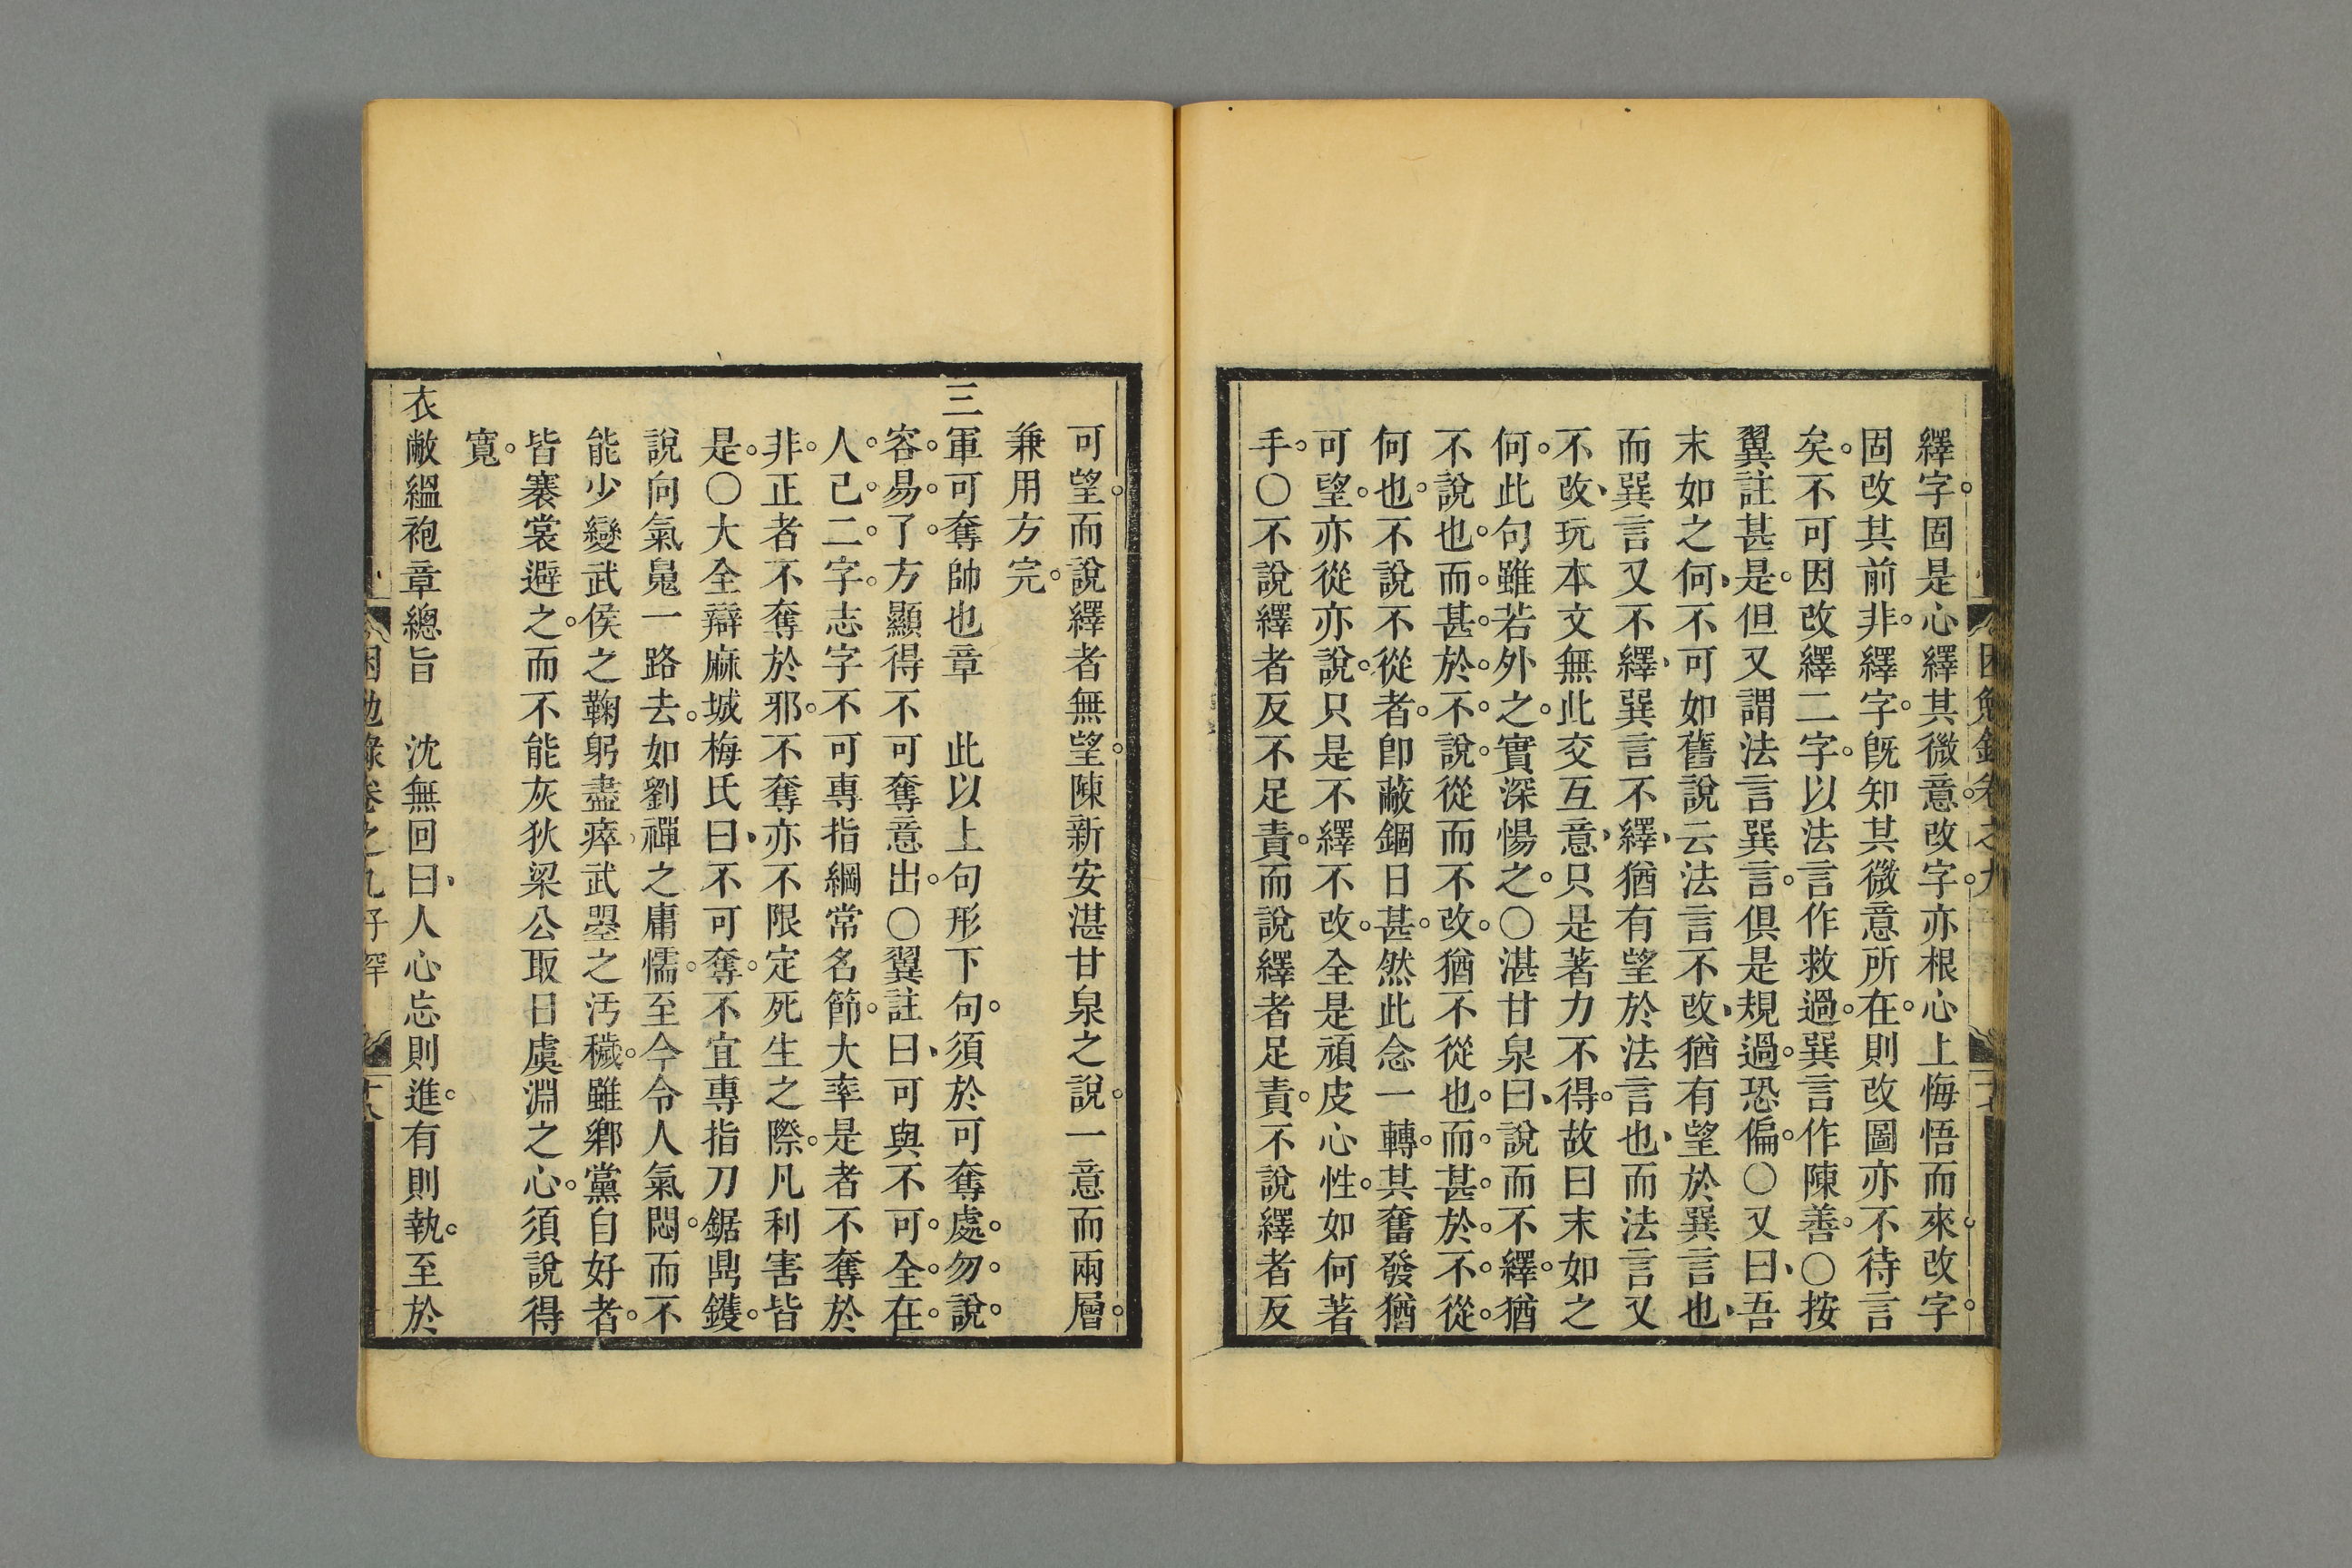 繹字。固是心繹其微意。改字。亦根心上悔悟而來。改字。
固改其前非。繹字。旣知其微意所在。則改圖亦不待言
矣。不可因改繹二字。以法言作救過。巽言作陳善。○按
翼註甚是。但又謂法言巽言。俱是規過。恐偏。○又曰、吾
末如之何、不可如舊說云法言不改、猶有望於巽言也、
而巽言又不繹、巽言不繹、猶有望於法言也、而法言又
不改、玩本文無此交互意、只是著力不得。故曰末如之
何。此句雖若外之。實深惕之。○湛甘泉曰、說而不繹。猶
不說也。而甚於不說。從而不改。猶不從也。而甚於不從。
何也。不說不從者。卽蔽錮日甚。然此念一轉。其奮發猶
可望。亦從亦說。只是不繹不改。全是頑皮心性。如何著
手。○不說繹者反不足責。而說繹者足責。不說繹者反
可望。而說繹者無望。陳新安湛甘泉之說。一意而兩層。
兼用方完。
三軍可奪帥也章　此以上句形下句。須於可奪處。勿說。
容易了。方顯得不可奪意出。○翼註曰、可與不可。全在。
人己二字。志字不可專指綱常名節。大率是者不奪於
非。正者不奪於邪。不奪亦不限定死生之際。凡利害皆
是。○大全辯麻城梅氏曰、不可奪。不宜專指刀鋸鼎鑊。
說向氣鬼一路去。如劉禪之庸懦。至今令人氣悶。而不
能少變武侯之鞠躬盡瘁、武曌之汚穢。雖鄕黨自好者。
皆褰裳避之。而不能灰狄梁公取日虞淵之心。須說得
寬。
衣敝縕袍章總旨　沈無回曰、人心忘則進。有則執。至於